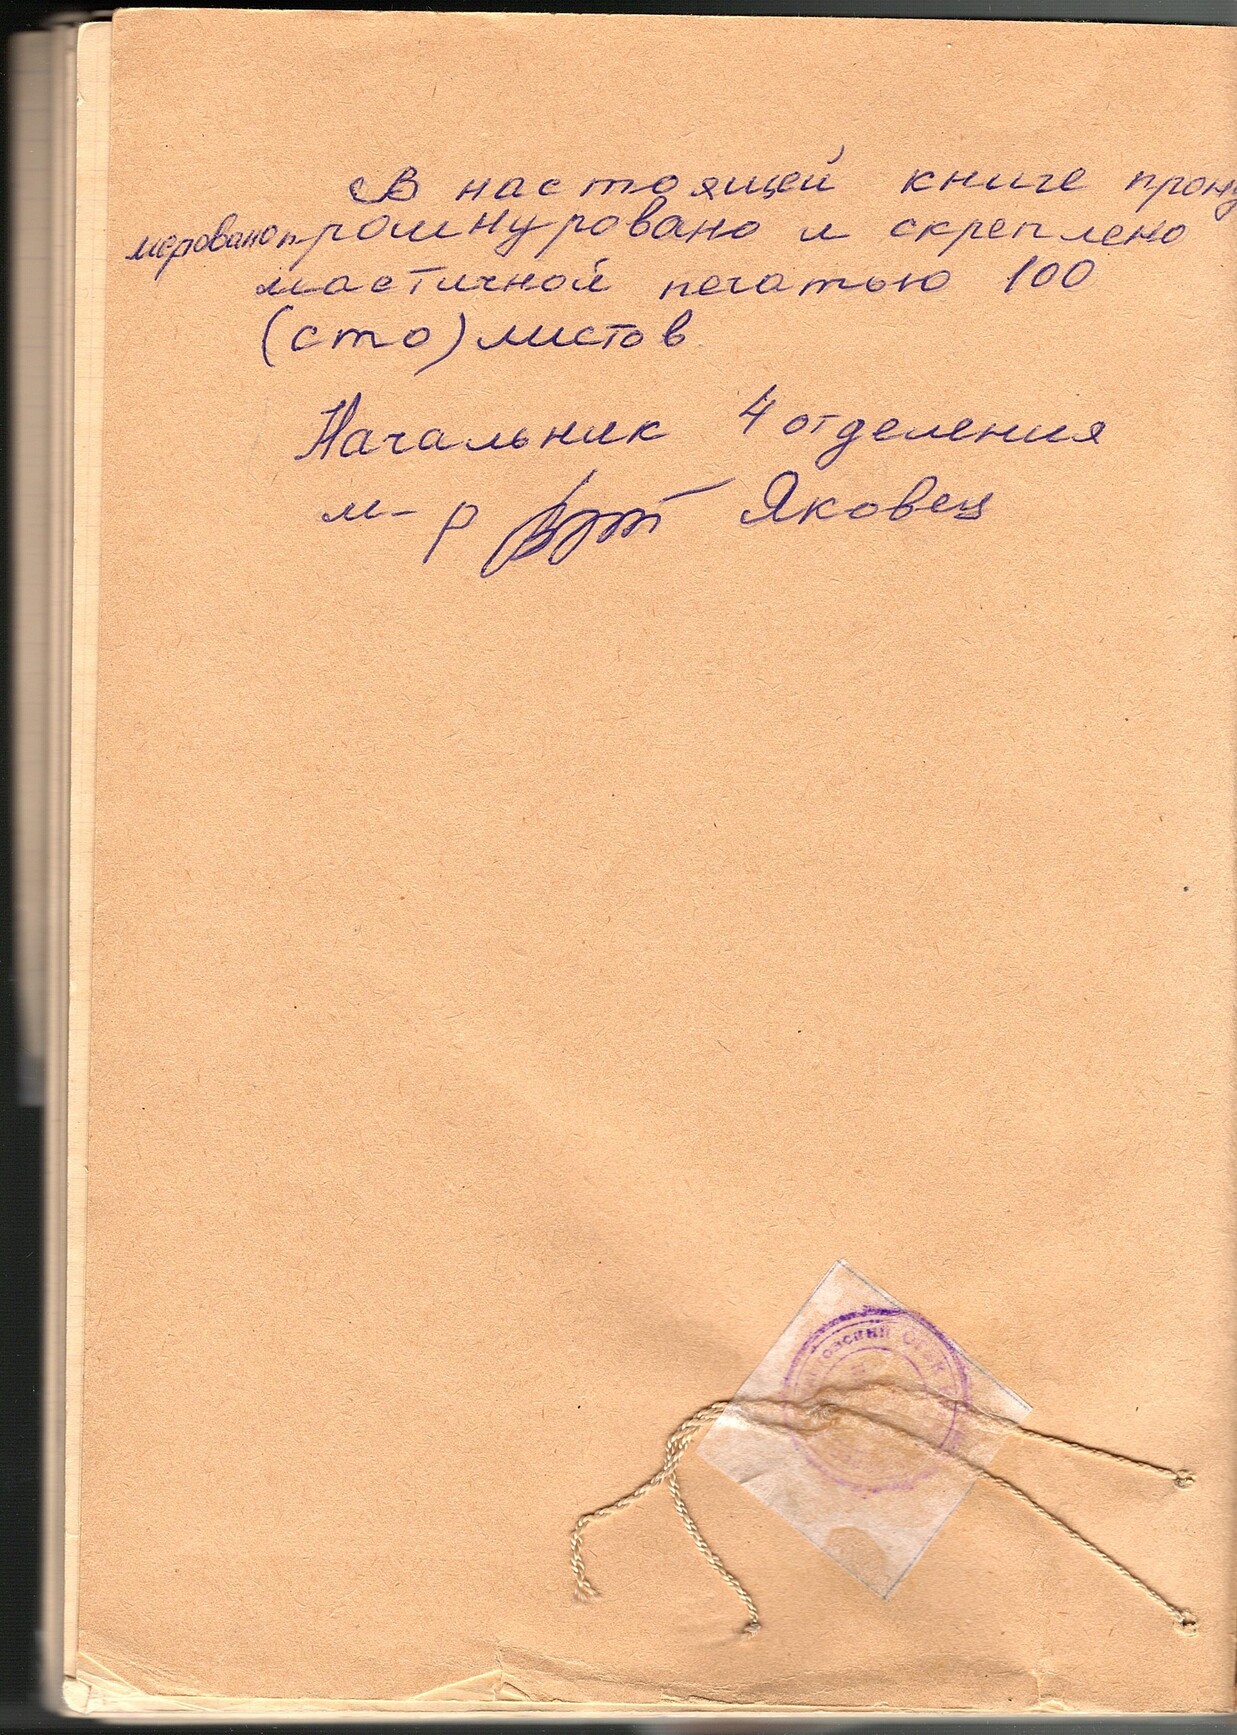 В настоящей книге прону
меровано прошнуровано и скреплено
мастичной печатью 100
(сто) листов
Начальник 4 отделения
м-р Яковец